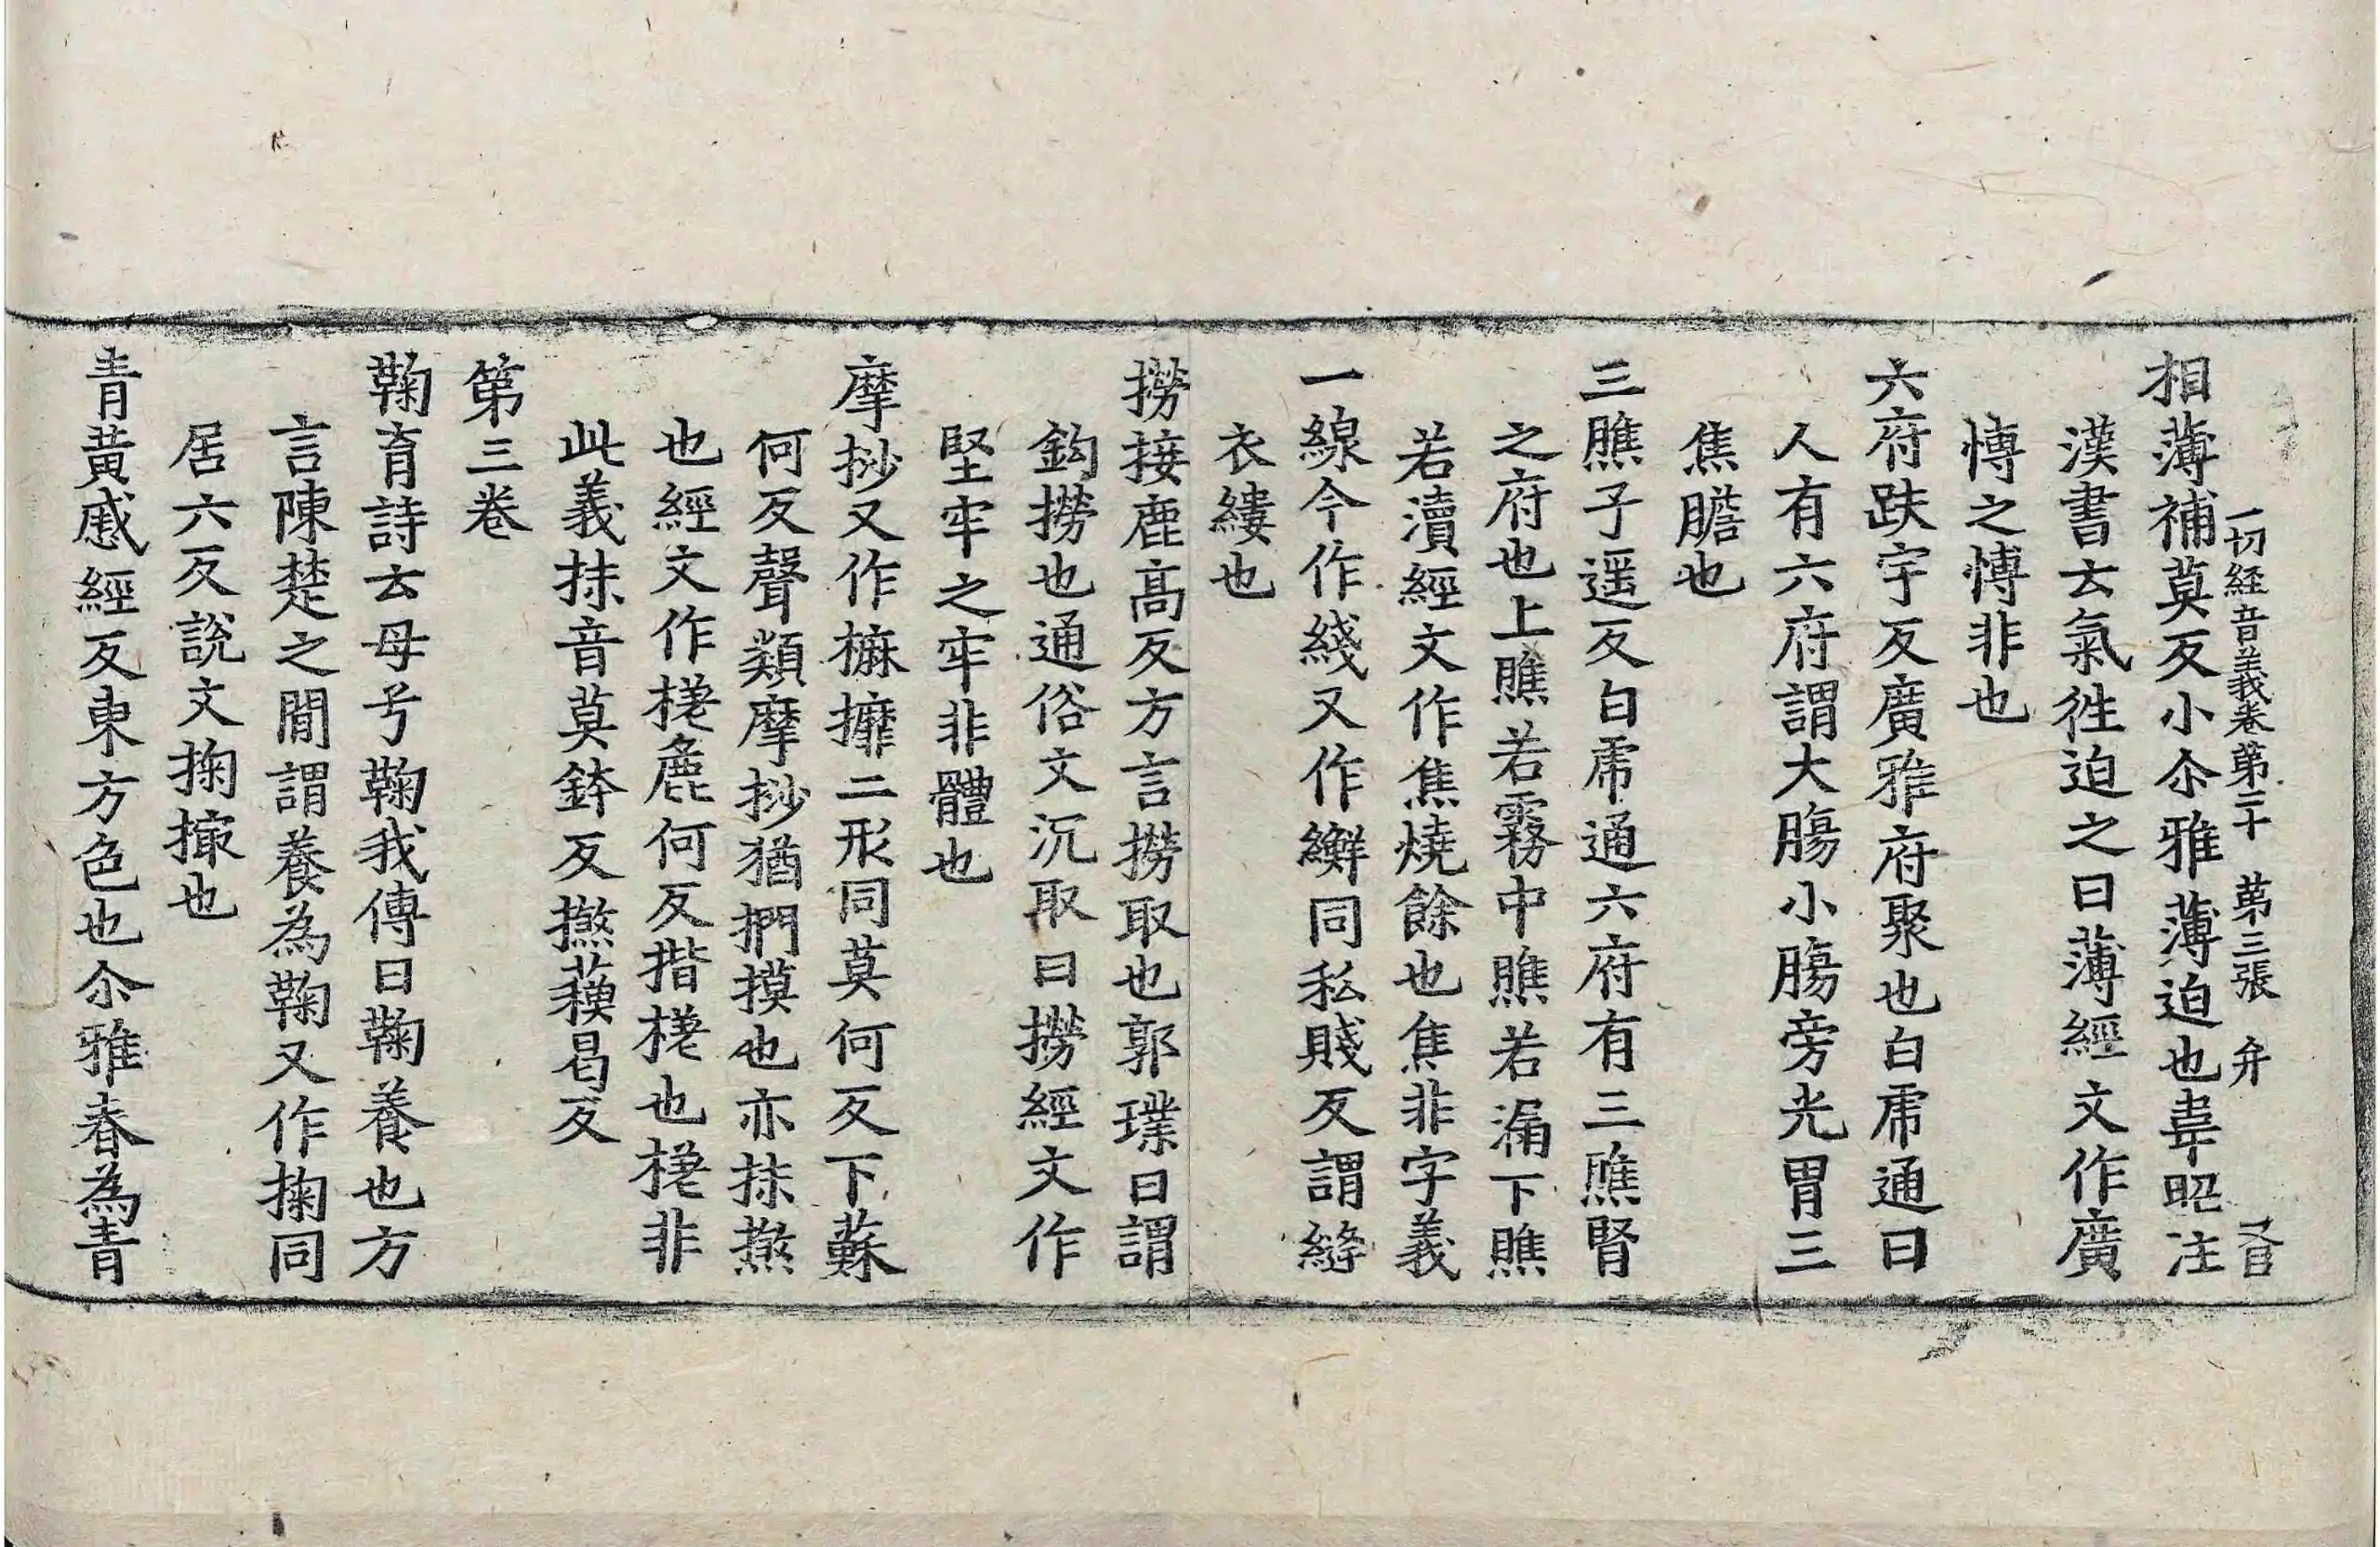 一切経音義卷第二十　第三張　弁
相薄補莫反小尒雅薄迫也韋昭注
漢書云氣徃迫之曰薄經文作廣
愽之愽非也
六府趺宇反廣雅府聚也白虎通曰
人有六府謂大膓小膓旁光胃三
焦膽也
三膲子遥反白虎通六府有三膲腎
之府也上膲若霧中膲若漏下膲
若瀆經文作焦燒餘也焦非字義
一線今作綫又作䌫同私賤反謂縫
衣縷也
撈接鹿高反方言撈取也郭璞曰謂
鈎撈也通俗文沉取曰撈經文作
堅牢之牢非體也
摩抄又作㩢攠二形同莫何反下蘇
何反聲類摩抄猶捫摸也亦抹摋
也經文作㮈麁何反揩㮈也㮈非
此義抹音莫鉢反摋蘓曷反
第三卷
鞠育詩云母兮鞠我傳曰鞠養也方
言陳楚之間謂養為鞠又作掬同
居六反說文掬撮也
青黃戚經反東方色也尒雅春為青